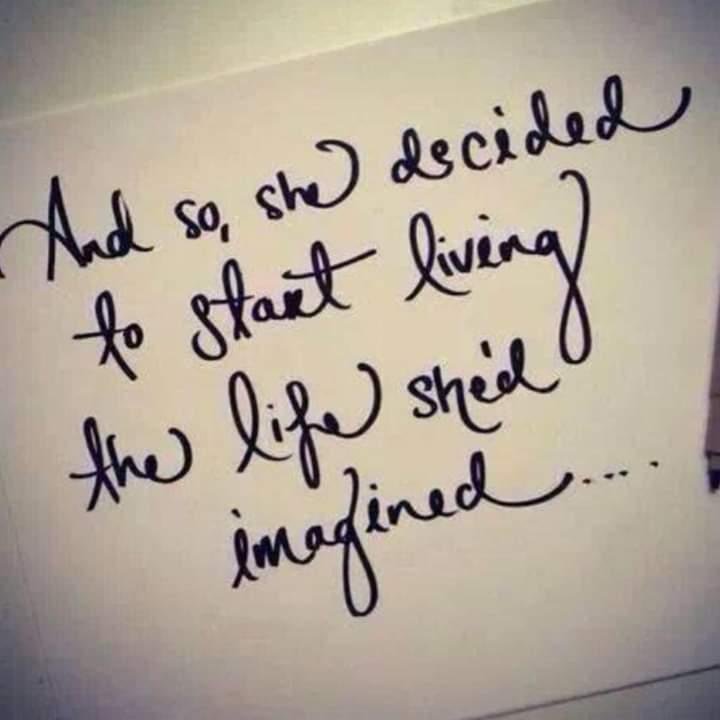 And so, she decided
to start living
the life she'd
imagined....